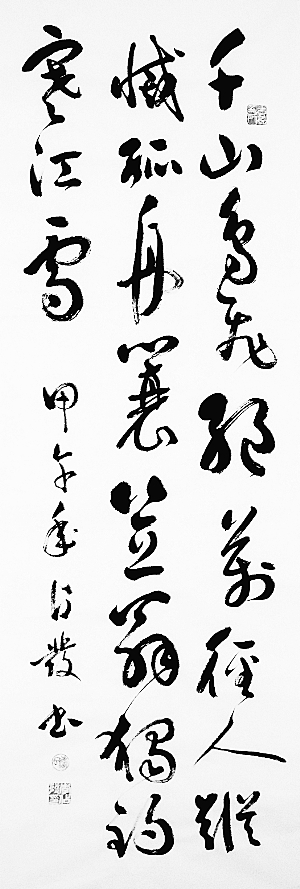 千山鳥飛絕萬徑人蹤
滅孤舟蓑笠翁獨釣
寒江雪
甲午年發書